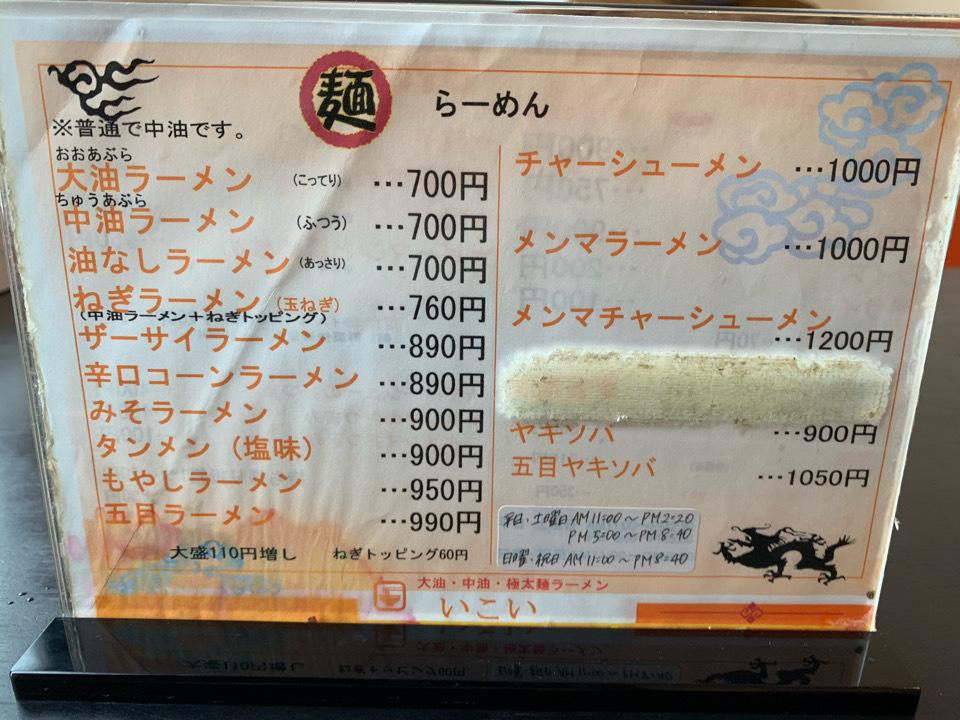 麺 らーめん
※普通で中油です。
おおあぶら
大油ラーメン (こってり) …700円
ちゅうあぶら
中油ラーメン (ふつう) …700円
油なしラーメン (あっさり) …700円
ねぎラーメン (玉ねぎ) …760円
(中油ラーメン+ねぎトッピング)
ザーサイラーメン …890円
辛口コーンラーメン …890円
みそラーメン …900円
タンメン(塩味) …900円
もやしラーメン …950円
五目ラーメン …990円
大盛110円増し ねぎトッピング60円
チャーシューメン …1000円
メンマラーメン …1000円
メンマチャーシューメン
…1200円
ヤキソバ …900円
五目ヤキソバ …1050円
平日・土曜日 AM11:00〜PM2:20
PM5:00〜PM8:40
日曜・祝日 AM11:00〜PM8:40
大油・中油・極太麺ラーメン
いこい